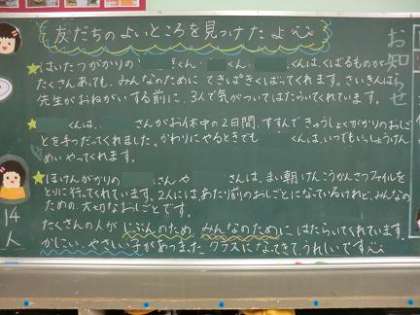 友だちのよいところを見つけたよ
お知らせ
はいたつがかりの くん、 くん、 くんは、くばるものが
たくさんあっても、みんなのために てきぱきくばってくれます。さいきんは
先生がおねがいする前に、3人で気がついてはたらいてくれています。
くんは、 さんがお休み中の2日間、すすんできゅうしょくがかりのおしご
とを手つだってくれました。かわりにやるときでも くんは、いつもいっしょうけ
んめいやってくれます。
ほけんがかりの さんや さんは、まい朝けんこうかんさつファイルを
とりに行てくれています。2人には、あたり前のおしごとになっているけれど、みんなの
ための大切なおしごとです。
たくさんの人が じぶんのため、みんなのために はたらいてくれています。
かしこい、やさしい子があつまったクラスになってきてうれしいです
14
人